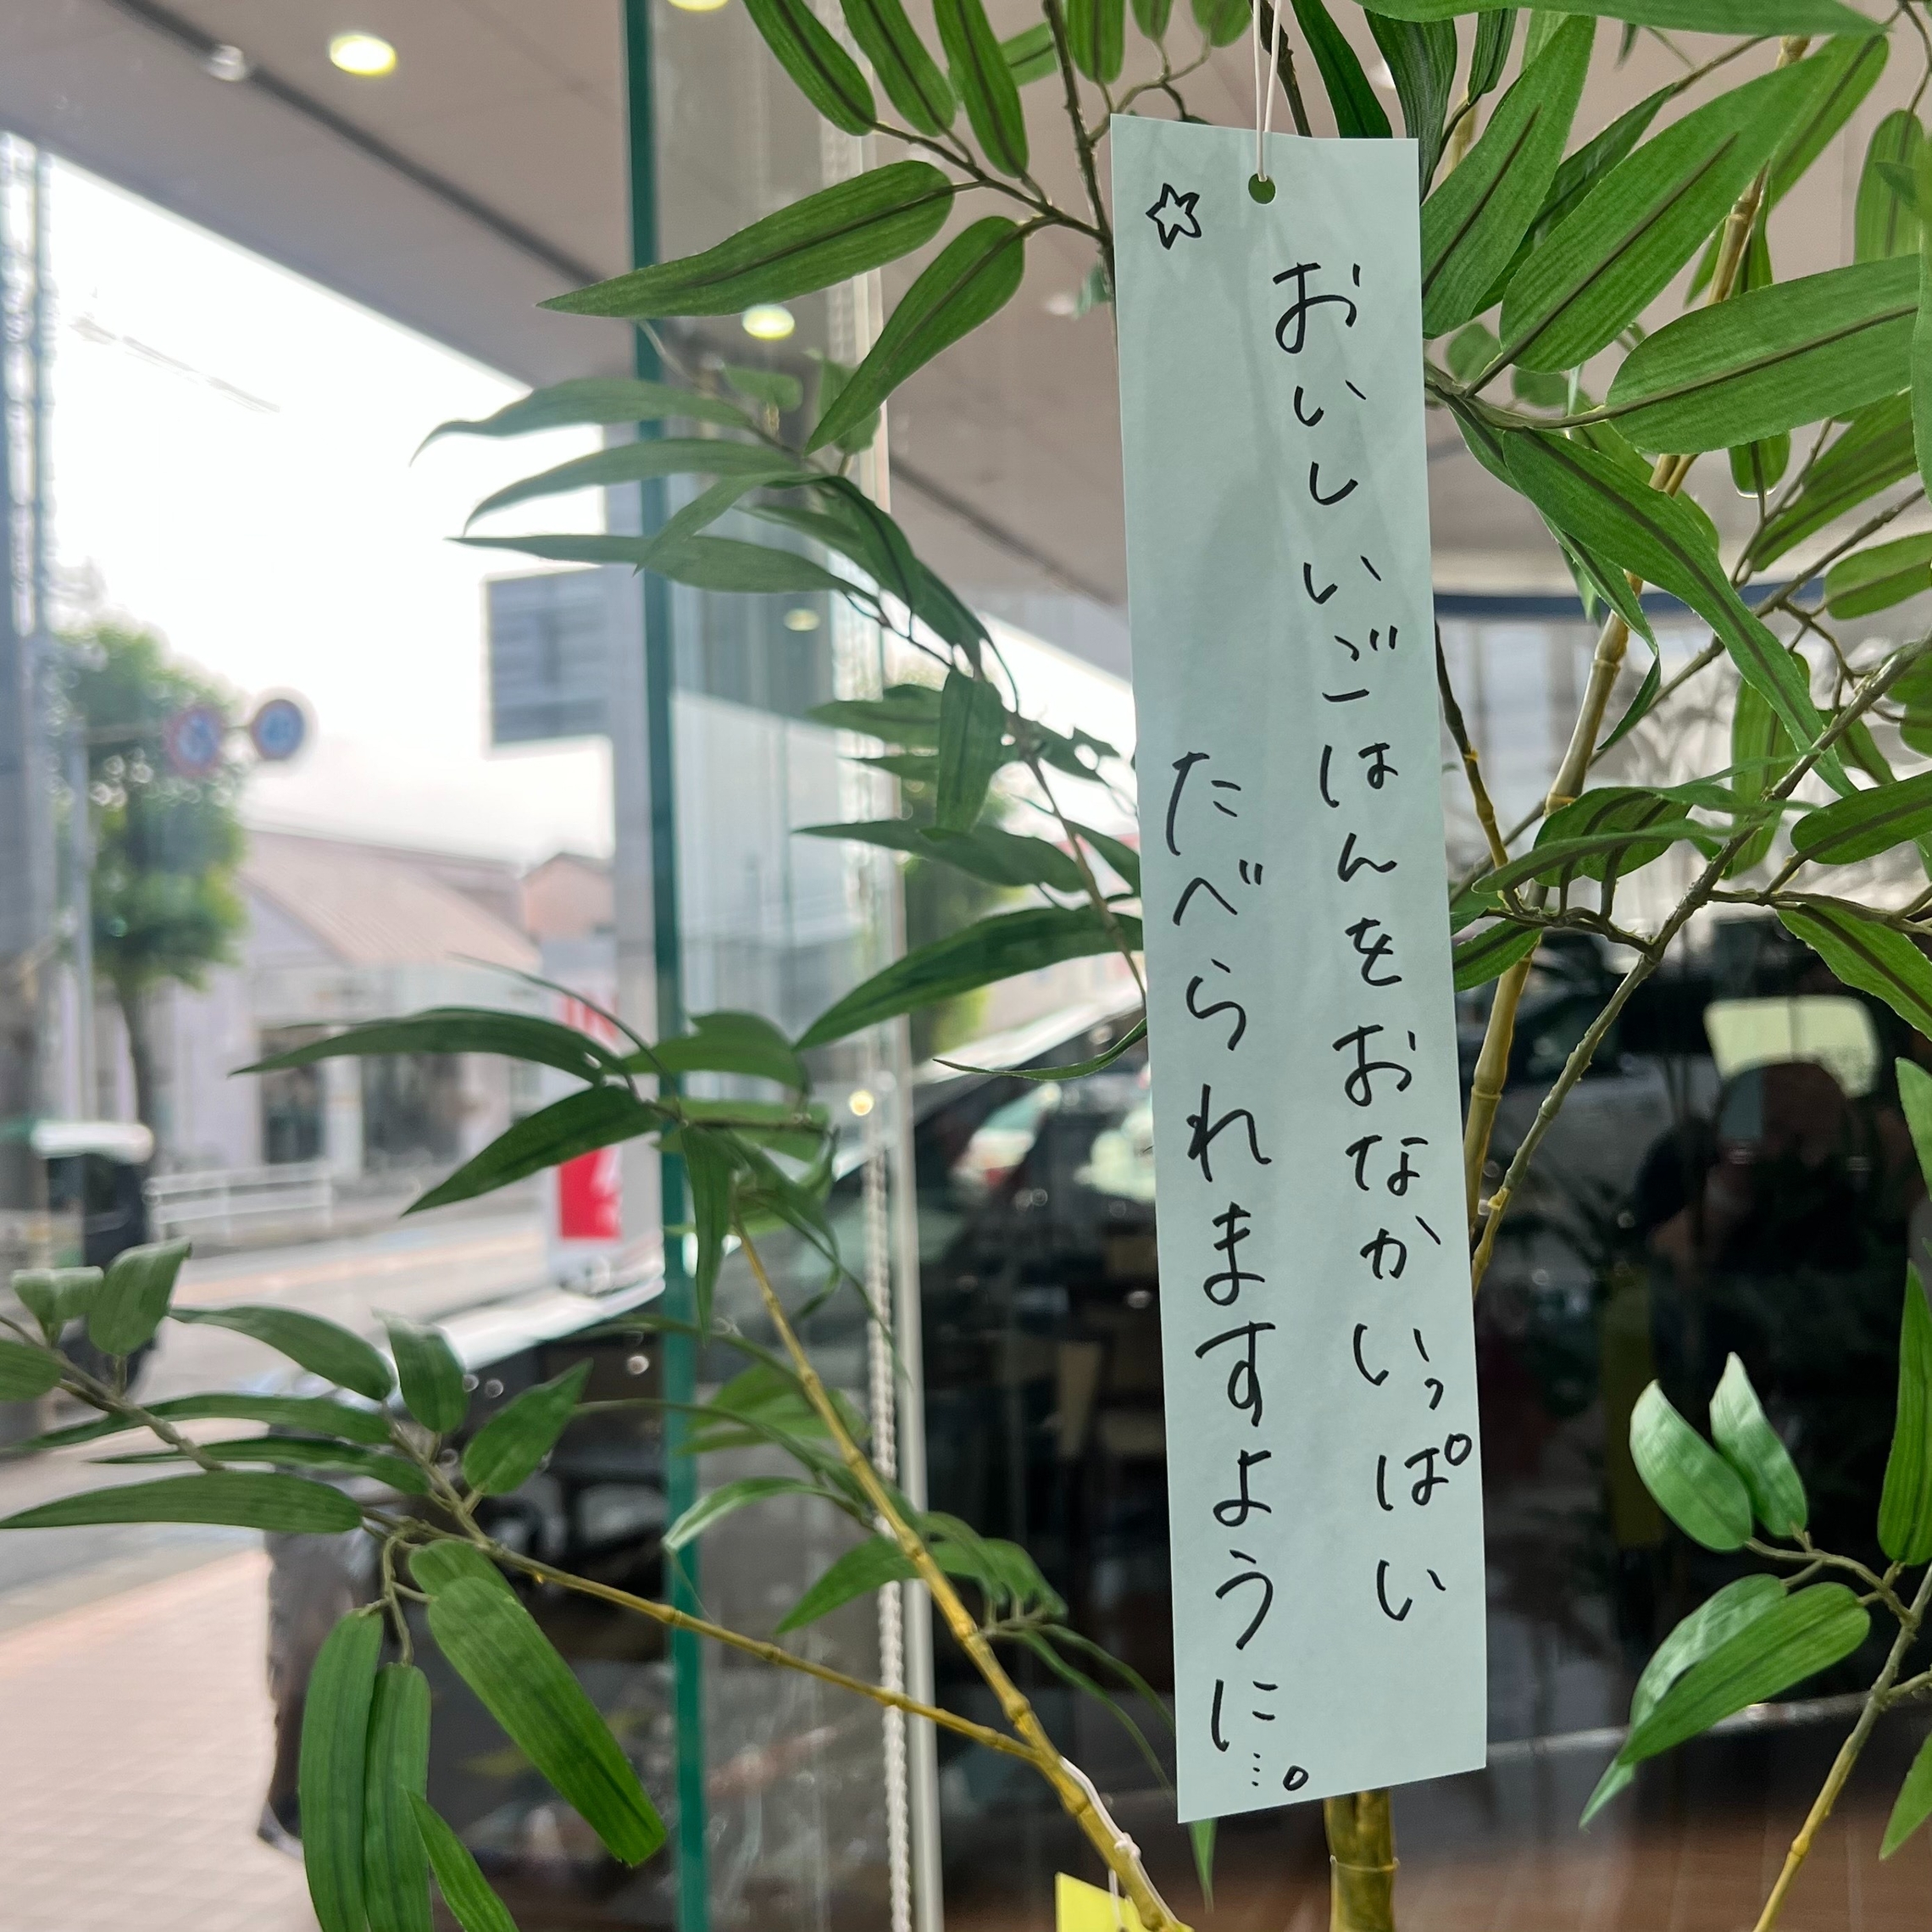 おいしいごはんをおなかいっぱい
たべられますように…。